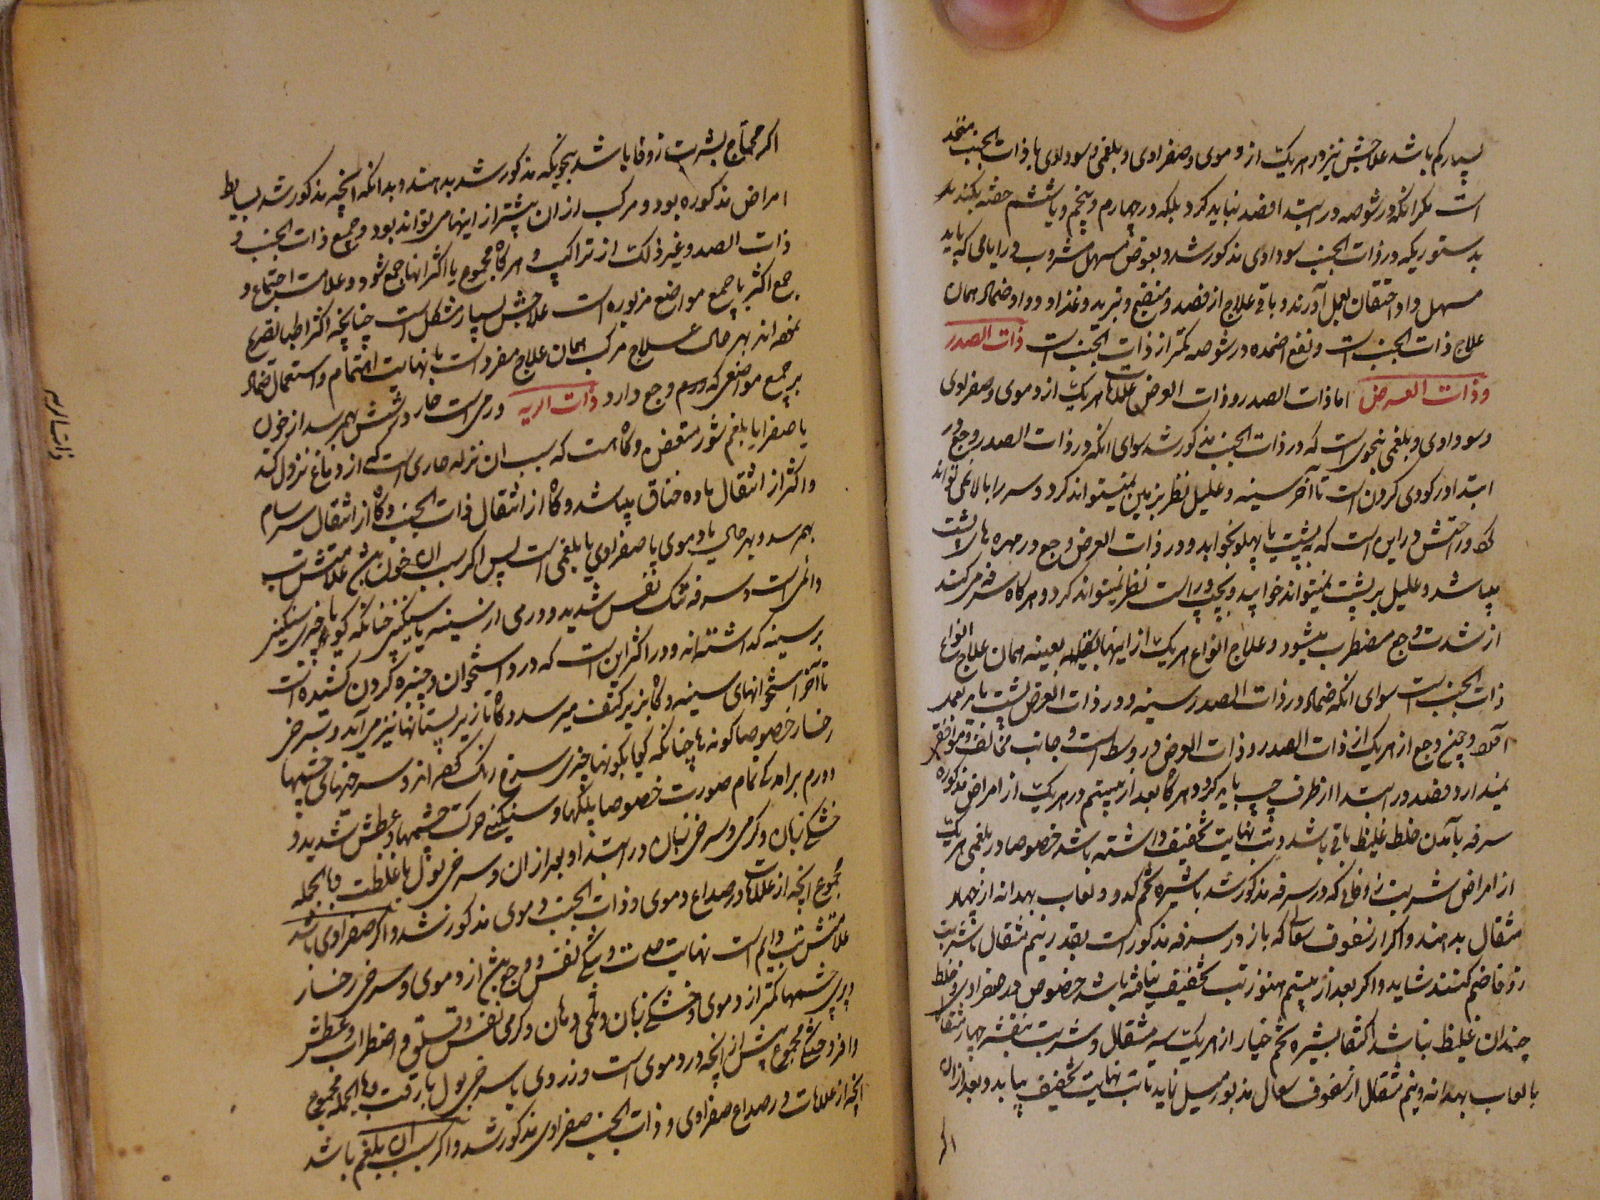 بسیار کم باشد علاجش نیز در هر یک از دموی و صفراوی و بلغمی و سوداوی با ذات الجنب متحد
است مگر انکه در شوصه در ابتدا فصد نباید کرد بلکه در چهارم و پنجم و یا ششم حقنه بکنند
بدستوریکه در ذات الجنب سوداوی مذکور شد و بعوض مسهل مشروب در ایامی که باید
مسهل داد احتقان بعمل آورند و باقی علاج از فصد و منضج و تبرید و غذا و دوا و ضماد همان
علاج ذات الجنب است و نفع اضمده در شوصه کمتر از ذات الجنب است ذات الصدر
و ذات العرض اما ذات الصدر و ذات العرض علامات هر یک از دموی و صفراوی
و سوداوی و بلغمی بنحوی است که در ذات الجنب مذکور شد سوای انکه در ذات الصدر وجع در
ابتدا از کودی کردن است تا آخر سینه و علیل نظر بزمین نمیتواند کرد و سر را بالا نمی تواند
و راحتش در این است که به پشت یا پهلو بخوابد و در ذات العرض وجع در مهره های پشت
میباشد و علیل بر پشت نمیتواند خوابید و بچپ و راست نظر نمیتواند کرد و هر کاه سرفه میکند
از شدت وجع مضطرب میشود و علاج انواع هر یک از اینها بعینه همان علاج انواع
ذات الجنب است سوای انکه ضماد در ذات الصدر بر سینه و در ذات العرض بر پشت باید
و چون وجع از هر یک از ذات الصدر و ذات العرض در وسط است و جانب مخالف و موافق
ندارد فصد در ابتدا از طرف چپ باید کرد و هر کاه بعد از بیستم در هر یک از امراض مذکوره
سرفه با آمدن خلط غلیظ باقی باشد و تب نهایت تخفیف داشته باشد خصوصا در بلغمی هر یک
از امراض شربت زوفائی که در سرفه مذکور شد با شیره تخم کدو و لعاب بهدانه از چهار
مثقال بدهند و اکر از سفوف سعالی که باز در سرفه مذکور است بقدر نیم مثقال با شربت
زوفا ضم کنند شاید و اکر بعد از بیستم هنوز تب تخفیف نیافته باشد خصوص در صفراوی و خلط
چندان غلیظ نباشد اکتفا بشیره تخم خیار از هر یک سه مثقال و شربت بنفشه چهار مثقال
با لعاب بهدانه و نیم مثقال از سفوف سعال مذبور میل نماید تا تب نهایت تخفیف بیابد و بعد از ان
اکر
اکر محتاج بشربت زوفا باشد بنحویکه مذکور شد بدهند و بدانکه انچه مذکور شد بسایط
امراض مذکوره بود و مرکب از ان بیشتر از اینها می تواند بود و جمع ذات الجنب و
ذات الصدر و غیر ذلک از تراکیب و هر کاه مجموع یا اکثر انها جمع شود و علامت اجتماع
جمع اکثر یا جمیع مواضع مزبوره است علاجش بسیار مشکل است چنانچه اکثر اطبا تصریح
نموده اند بهر حال علاج مرکب همان علاج مفرد است با نهایت اهتمام و استعمال ضماد
بر جمیع مواضعی که ورم و وجع دارد ذات الریه ورمی است حار در شش بهم رسد از خون
یا صفرا یا بلغم شور متعفن و کاه است که سبب ان نزله حاری است که از دماغ نزول کند
و اکثر از انتقال ماده خناق میباشد و کاه از انتقال ذات الجنب و کاه از انتقال سرسام
بهم رسد و بهر حال یا دموی یا صفراوی یا بلغمی است پس اکر سبب ان خون باشد علامتش تب
دائمی است و سرفه تنک نفس شدید و ورمی از سینه با سنکینی چنانکه کویا چیزی سنکین
بر سینه کذاشته اند و در اکثر این است که درد استخوان و چنبره کردن کشیده است
تا آخر استخوانهای سینه و کاه بزیر کتف میرسد و کاه تا زیر پستانها نیز می آید و سرخی
رخسار خصوصا کونه ها چنانکه کویا بکونها چیزی سرخ رنک کرده اند و سرخی های چشمها
و ورم بر امدکی تمام صورت خصوصا پلکها و سنکینی حرکت چشمها و عطش شدید و
خشکی زبان و کرمی و سرخی زبان در ابتدا و بعد از ان و سرخی بول با غلظت و بالجمله
مجموع انچه از علامات در صداع دموی و ذات الجنب دموی مذکور شد و اکر صفراوی باشد
علامتش تب دایم است نهایت حدت و تنکی نفس و وجع بیش از دموی و سرخی رخسار
و چشمها کمتر از دموی و خشکی زبان و تلخی دهان و کرمی نفس و قلق و اضطراب و عطش
و افروختکی مجموع بیش از انچه در دموی است و زردی یا سرخی بول با رقت و بالجمله مجموع
انچه از علامات در صداع صفراوی و ذات الجنب صفراوی مذکور شد و اکر سبب ان بلغم باشد
ذات الریه